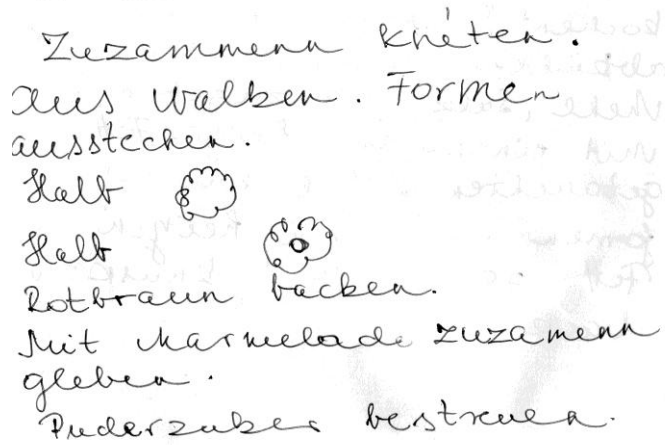 Zuzammenn knéten.
aus walken. Formen
ausstechen.
Halb
Halb
Rotbraun backen.
Mit Marmelade zuzamenn
gleben.
Puderzuker bestreuen.